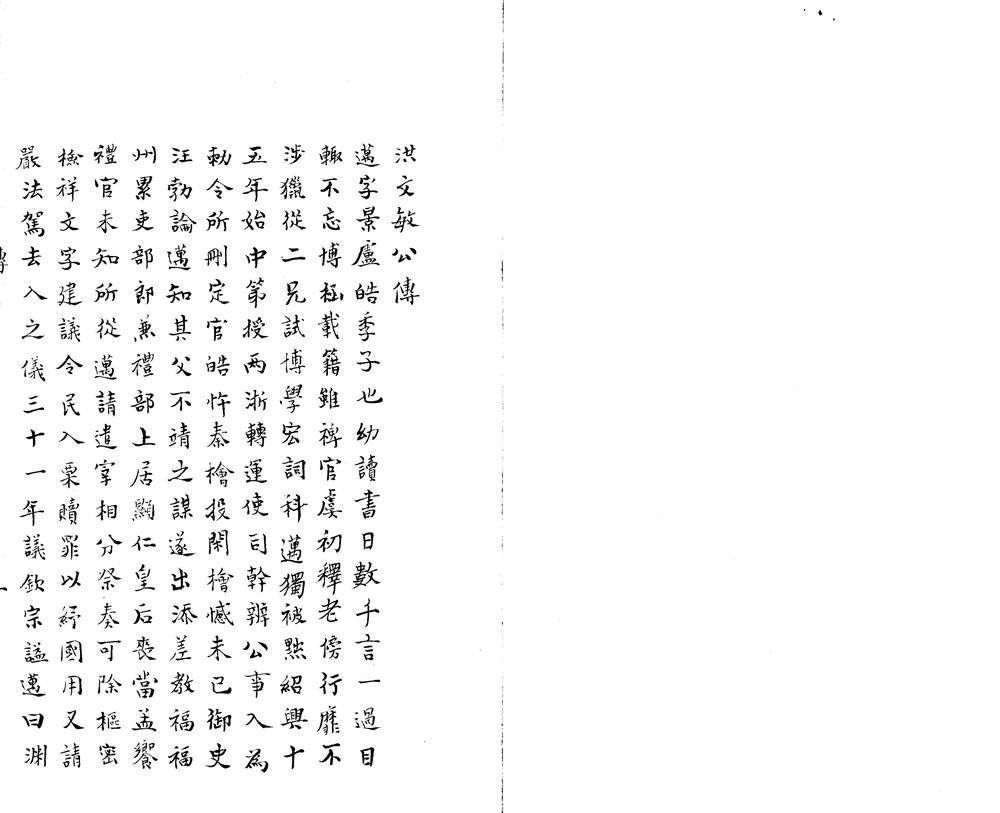 洪文敏公傳
邁字景盧皓季子也幼讀書日數千言一過目
輙不忘博極載籍雖稗官虞初釋老傍行靡不
涉獵從二兄試博學宏詞科邁獨被黜紹興十
五年始中第授兩浙轉運使司幹辦公事入為
勅令所刪定官皓忤秦檜投閑檜憾未已御史
汪勃論邁知其父不靖之謀遂出添差教福福
州累吏部郎兼禮部上居顯仁皇后喪當孟饗
禮官未知所從邁請遣宰相分祭奏可除樞密
檢祥文字建議令民入粟贖罪以紓國用又請
嚴法駕去入之儀三十一年議欽宗謚邁曰淵